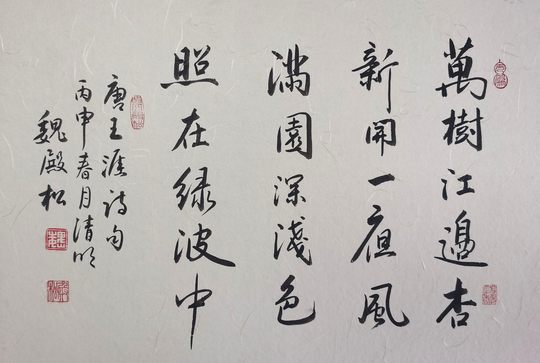 萬樹江邊杏
新開一夜風
滿園深淺色
照在緑波中
唐王涯詩句
丙申春月清明
魏殿松